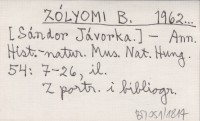 ZÓLYOMI B. 1962...
[Sándor Jávorka.] – Ann.
Hist.-natur. Mus. Nat. Hung.
54: 7-26, il.
2 portr. i bibliogr.